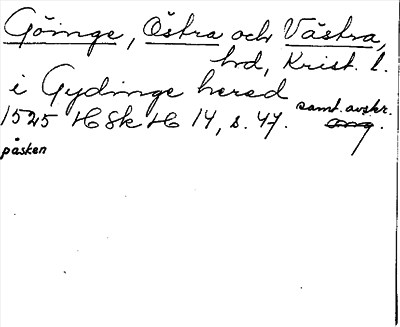 Göinge, Östra och Västra,
hrd, Krist. l.
i Gydinge hered
samt. avskr.
1525 HSkH 14, s. 47. orig.
påsken